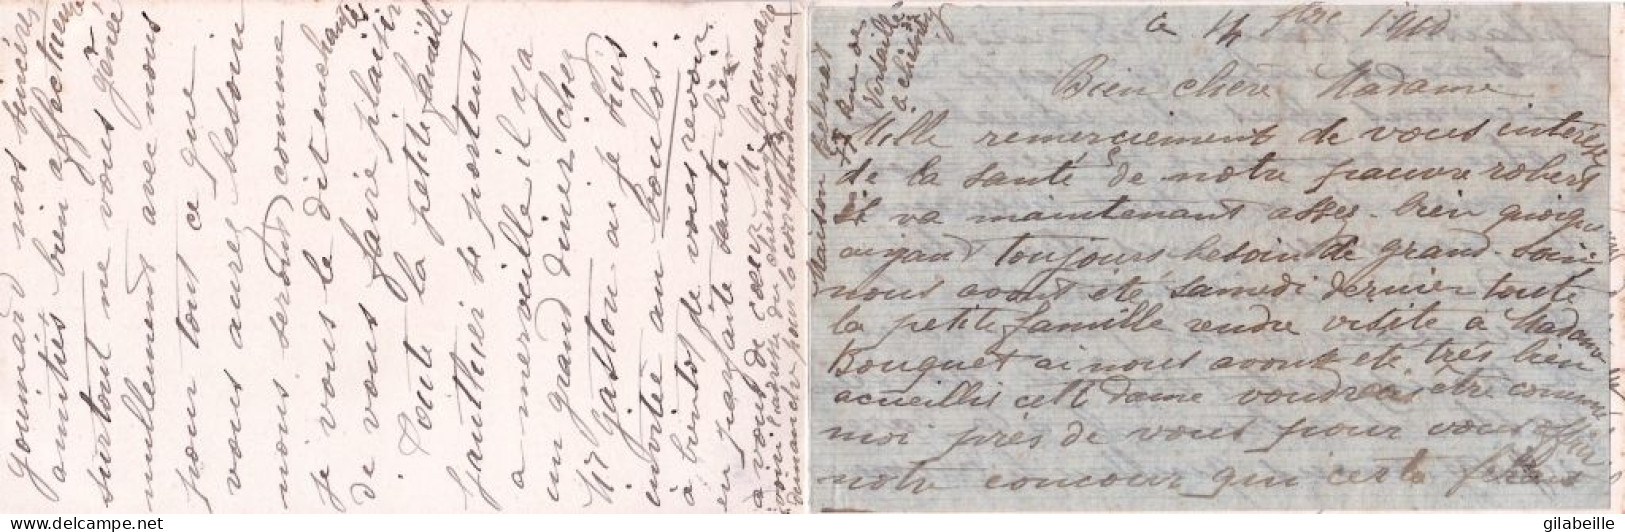 gouinard nos sincères
amitiés bien affectueuse
surtout ne vous gené
nullement avec nous
pour tout ce que
vous aurez besoin
nous serons comme
je vous le dit enchantés
de vous faire plaisir
toute la petite famille
gauthier se portent
a merveille il y a
un grand diner chez
Mr gaston ai je suis
invitée au boulot
à bientot de vous revoir
en parfaite santé très
a vous de cœur M.
ce 14 1900
Bien chère Madame
Mille remerciement de vous intéresse
de la santé de notre pauvre robert
il va maintenant assez bien quoique
ayant toujours besoin de grand soin
nous avons été samedi dernier toute
la petite famille rendre visite à Madame
Bouquet ai nous avons été très bien
acueillis cette dame voudrais être comme
moi près de vous pour vous offrir
notre concour qui certe
Maison
rue de
Versaille
à
gilabeille